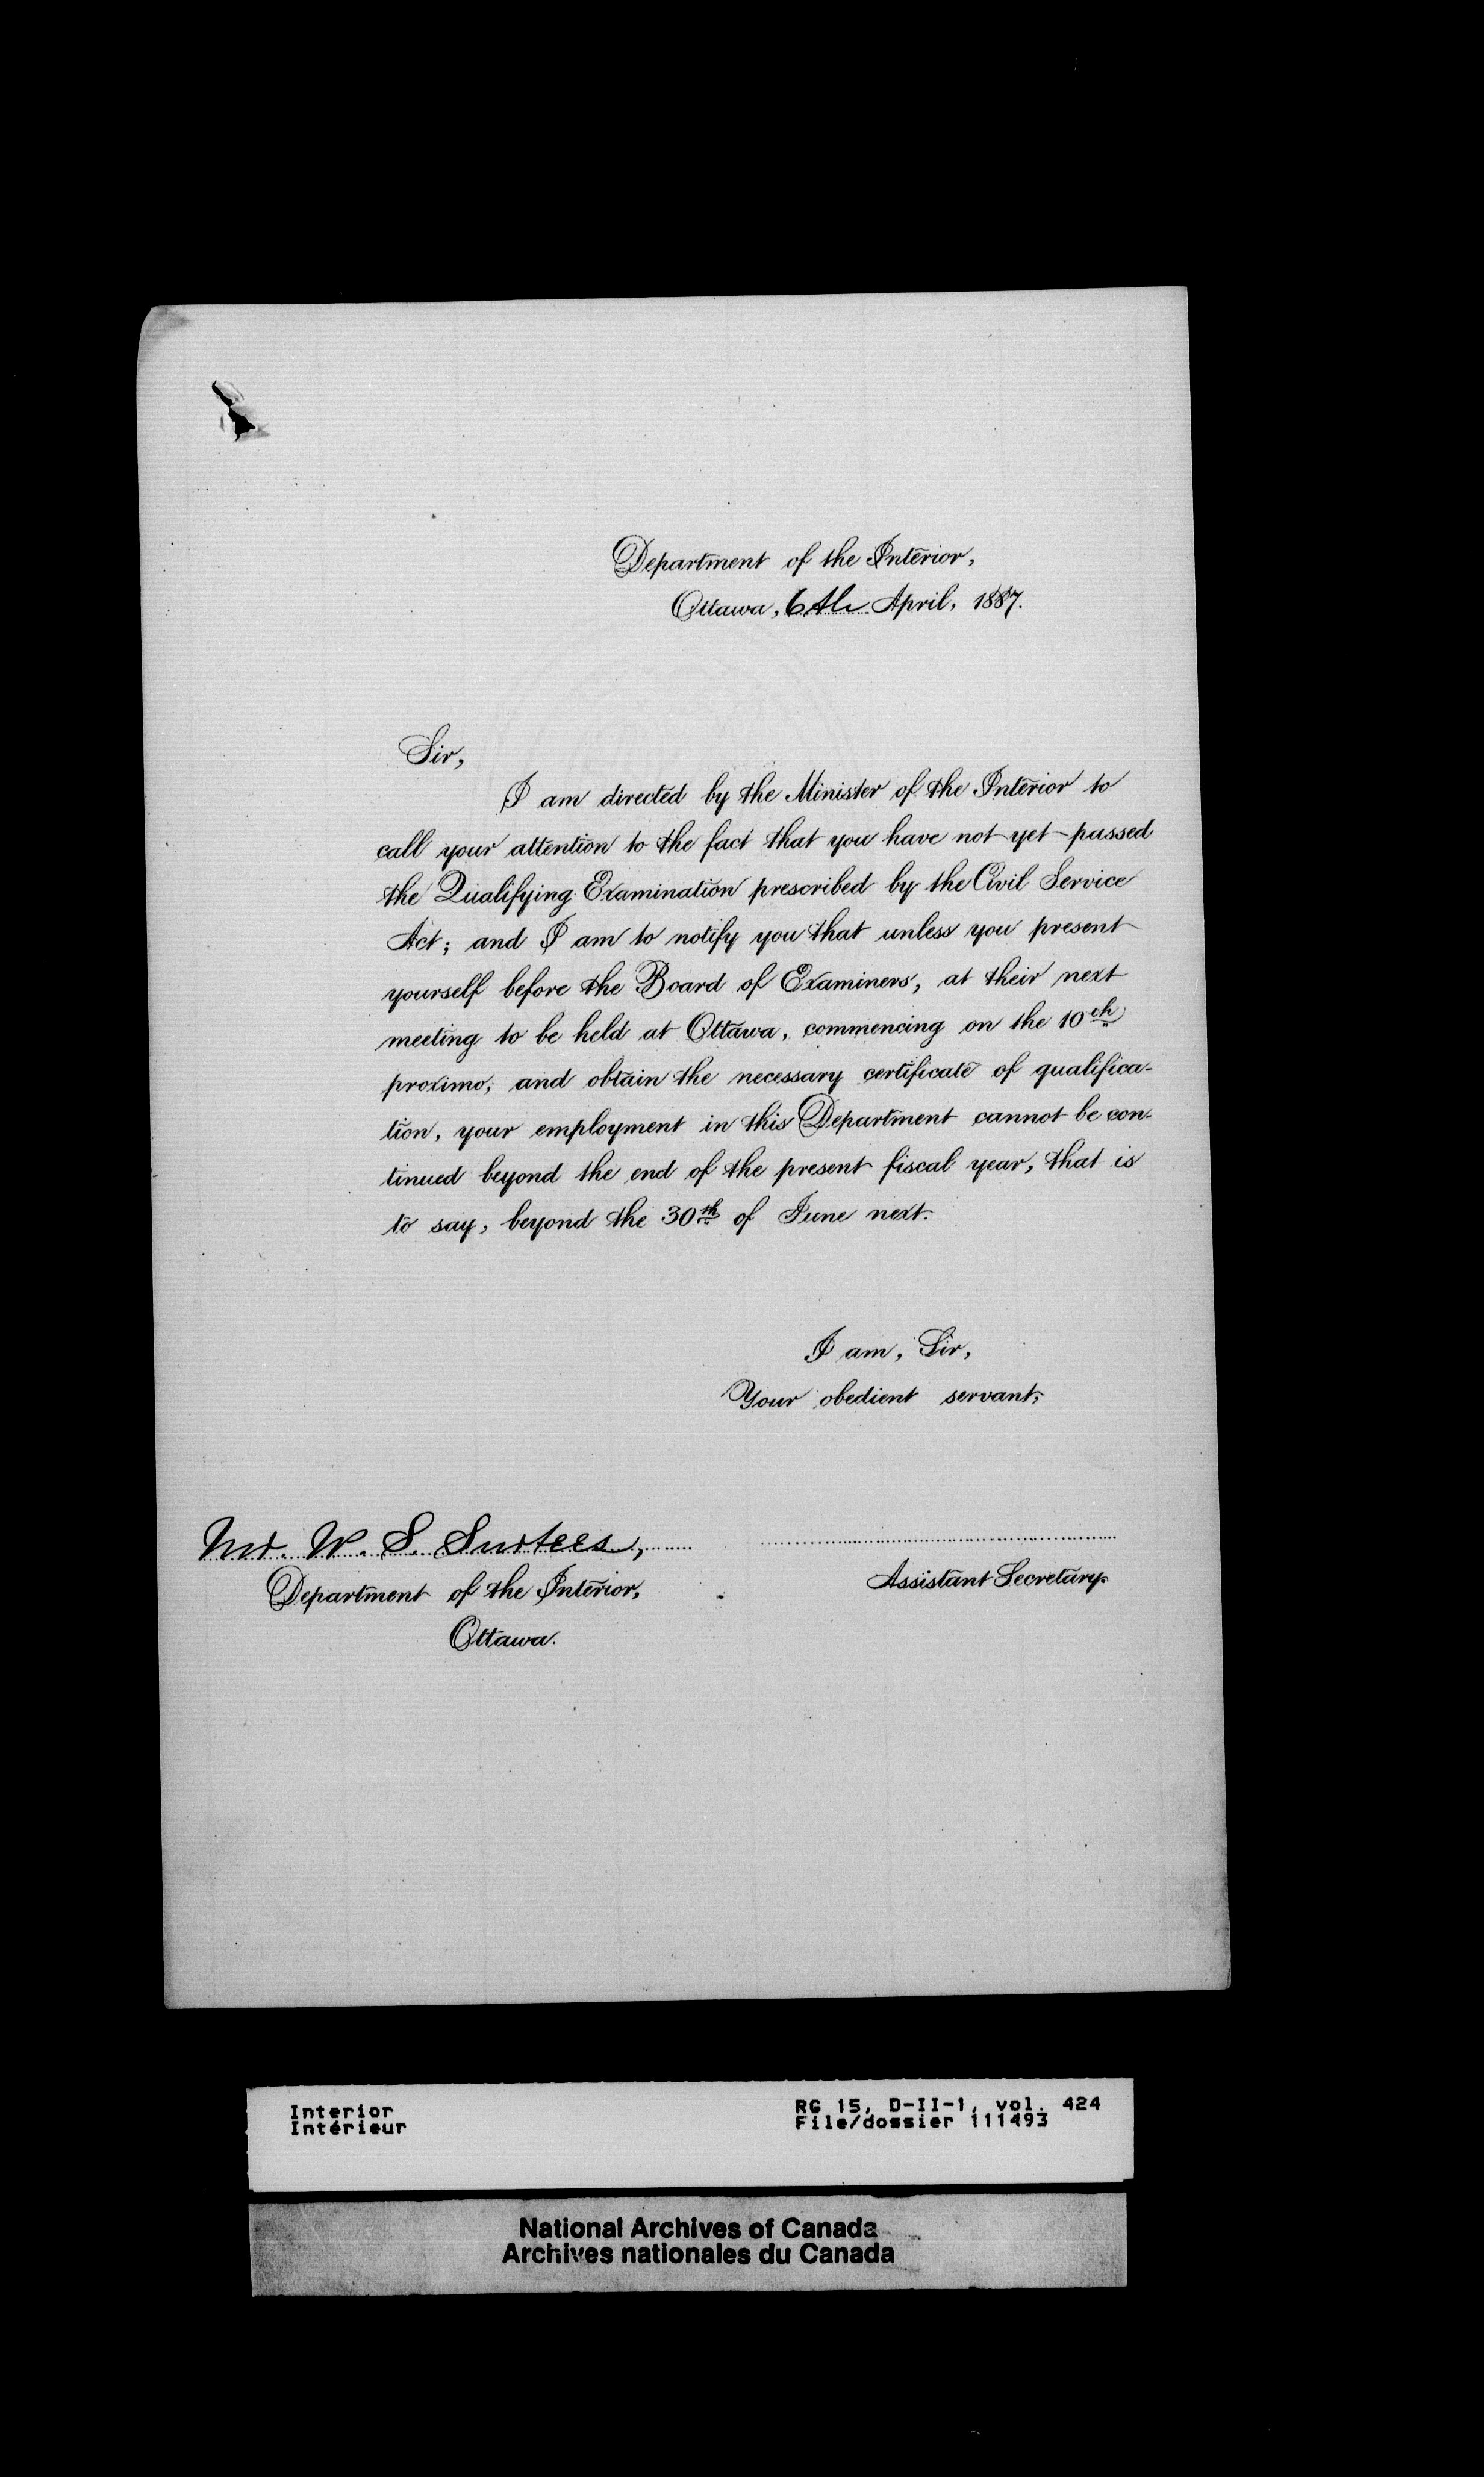 Department of the Interior,
Ottawa, 6th April, 1887.
Sir,
I am directed by the Minister of the Interior to
call your attention to the fact that you have not yet passed
the Qualifying Examination prescribed by the Civil Service
Act; and I am to notify you that unless you present
yourself before the Board of Examiners, at their next
meeting to be held at Ottawa, commencing on the 10th
proximo, and obtain the necessary certificate of qualifica-
tion, your employment in this Department cannot be con-
tinued beyond the end of the present fiscal year, that is
to say, beyond the 30th of June next.
I am, Sir,
Your obedient servant,
Mr. W. S. Surtees,
Assistant Secretary.
Department of the Interior,
Ottawa.
Interior
Intérieur
RG 15, D-II-1, vol. 424
File/dossier 111493
National Archives of Canada
Archives nationales du Canada